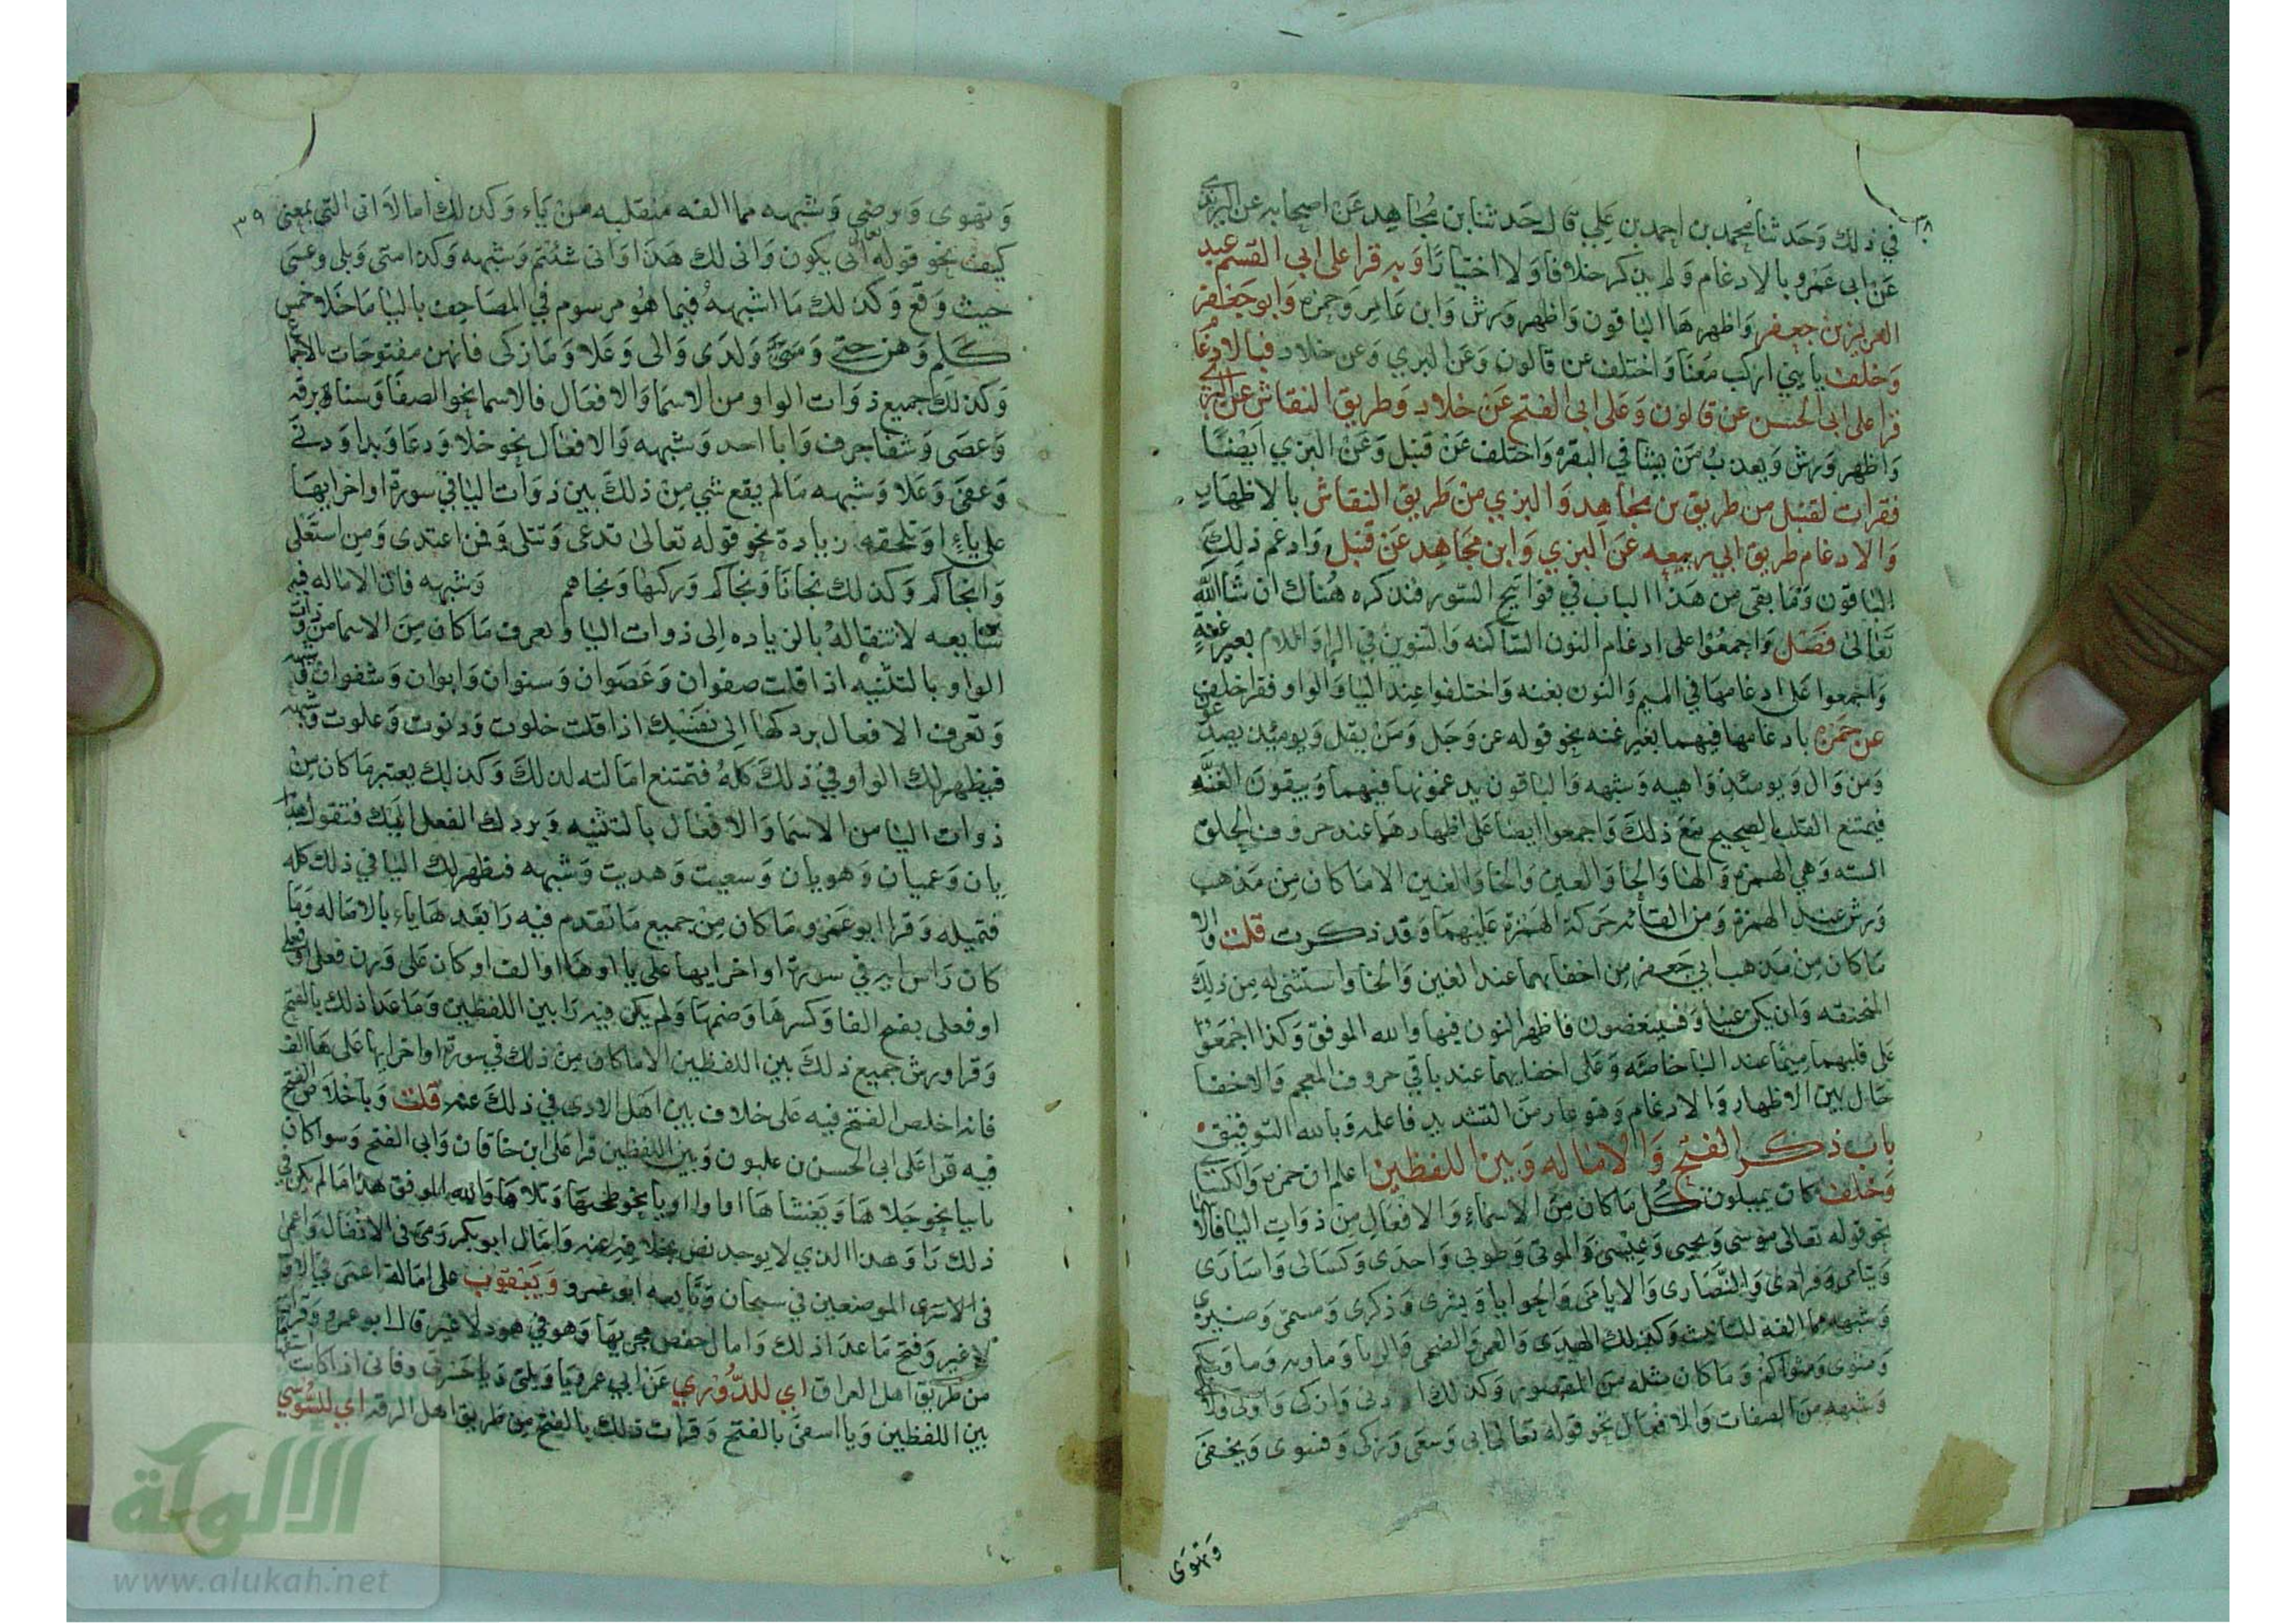 ٣٨
في ذلك وَحَدثنا محمد بن احمد بن عَلي قال حَدثنا بن مُجاهِد عَن اصحابه عن اليزيدي
عَن ابي عَمرو بالادغام وَلم يذكر خلافا وَلا اختيارًا وَبه قرا على ابي القسم عبد
العزيز بن جعفر وَاظهرها الباقون وَاظهر وَرش وَابن عَامر وَحمزه وَابو جَعفر
وَخلف يا بني اركب مَعَنا وَاختلف عن قالون وَعَن البزي وَعن خلاد فبالادغام
قرا على ابي الحسن عن قالون وَعَلى ابي الفتح عَن خلاد وَطريق النقاش عن البزي
وَاظهر وَرش وَيعذبُ مَن يشا في البقره وَاختلف عَن قنبل وَعَن البزي ايضًا
فقرات لقنبل من طريق بن مجاهِد وَالبزي من طريق النقاش بالاظهار
وَالادغام طريق ابي ربيعه عَن البزي وَابن مجَاهِد عَن قنبل وَادغم ذلِكَ
الباقون وَمَا بقي من هَذا الباب في فوَاتح السور فنذكره هُناك ان شَا الله
تعَالى فصَل وَاجمعُوا على ادغام النون السَّاكنه وَالتنوين في الرا وَاللام بغير غنةٍ
وَاجمعوا عَلى ادغامهَا في الميم وَالنون بغنه وَاختلفوا عِند اليا وَالواو فقرا خلف
عن حَمزه بادغامها فيهما بغير غنه نحو قوله عز وَجل وَمَن يقل وَيومئذ يصدعون
وَمن وَال وَيومئذ وَاهيه وَشبهه وَالباقون يدغمونها فيهما وَيبقون الغنَّه
فيمتنع القلب الصحيح مَعَ ذلكَ وَاجمعوا ايضا عَلى اظهارهمَا عند حروف الحلق
السته وَهي الهمزه وَالها وَالحا وَالعين وَالخا وَالغين الا مَا كان مِن مَذهب
وَرش عند الهمزة وَمن القائه حَركة الهَمزة عَليهمَا وَقد ذكرت قلت وَالا
مَا كان مِن مَذهب ابي جَعفر مِن اخفائهما عند الغين وَالخا وَاستثنى له مِن ذلِكَ
المنخنقه وَان يكن غنيا وَفسينغضون فاظهر النون فيها وَالله الموفق وَكذا اجمَعُوا
عَلى قلبهما ميمًا عند البا خاصَّه وَعَلى اخفائهما عند باقي حروف المعجم وَالاخفا
حَال بين الاظهار وَالادغام وَهو عار مِنَ التشديد فاعلمه وَبالله التوفيق
باب ذكر الفتح وَالامَاله وَبين اللفظين اعلم ان حمزه وَالكسَائي
وَخلف كان يميلون كُل مَا كان مِنَ الاسمَاءِ وَالافعَالِ مِن ذوَاتِ اليا فالاسما
نحو قوله تعَالى موُسَى وَيحيى وَعِيسَى وَالموتى وَطوبى وَاحدَى وَكسَالى وَاسَارَى
وَيتامى وَفرادى وَالنَّصَارى وَالايامَى وَالحوايا وَبشرى وَذكرى وَمسمى وَضيزى
وَشبهه مما الفه للتانيث وَكذلك الهدَى وَالعمَى وَالضحى وَالربا وَماويه وَماويكم
وَمثوى وَمثواكمُ وَمَا كان مثله مِنَ المقصور وَكذلك ادنى وَازكى وَاولى وَالاعلى
وَشبهه مِنَ الصفات وَالافعَال نحو قوله تعَالى ابى وَسعَى وَزكى وَفسوى وَيخفَى
وَتهوَى
٣٩
وَتهوى وَارضى وَشبهه مما الفه منقلبه مِن يَاء وَكذلك امالا انى التي بمعنى
كيف نحو قوله تعالى انّى يكون وَانى لك هَذَا وَانى شئتم وَشبهه وَكذا متى وَبلى وَعسَى
حيث وَقع وَكذلك مَا اشبههُ فيما هُو مرسوم في المصَاحِف باليا مَا خَلا خمس
كَلم وَهن حتى وَلدَى وَالى وَعَلا وَمَا زكى فانهن مفتوحَات بالاجمَاع
وَكذلكَ جميع ذوَات الواو من الاسمَا وَالافعَال فالاسما نحو الصفَا وَسنا برقه
وَعصَى وَشفا جرف وَابا احد وَشبهه وَالافعَال نحو خلا وَدعَا وَبدا وَدنى
وَعفى وَعَلا وَشبهه مَا لم يقع شي مِن ذلكَ بين ذوَات اليا في سورة اواخر ايهَا
على ياءٍ او تلحقه زيادة نحو قوله تعالى تدعى وَتتلى وَفمن اعتدى وَمِن استَعلى
وَانجاكم وَكذلك نجانَا وَنجاكم وَزكيها وَنجاهم وَشبهه فان الامَاله فيه
سَايعه لانتقالهُ بالزياده اِلى ذوات اليا وَتعرف مَا كان مِنَ الاسما من ذوات
الواو بالتثنيه اذا قلت صفوَان وَعَصَوان وَسنوان وَابوان وَشفوان وَشبهه
وَتعرف الافعال بردكهَا اِلى نفسِك اذا قلت خلوت وَدنوت وَعلوت وَشبهه
فيظهر لك الواو في ذلكَ كلهُ فتمتنع امَالته لذلكَ وَكذلِك يعتبر مَا كان مِن
ذوات اليا من الاسمَا وَالافعَال بالتثنيه وَبردك الفعل اليَك فتقول هديان
يان وَعميان وَهويان وَسعيت وَهديت وَشبهه فيظهر لك اليا في ذلك كله
فتميله وَقرا ابو عَمرو مَا كان مِن جميع مَا تقدم فيه رَا بعَدهَا ياء بالامَاله وَمَا
كان رَاس ايه في سورة اواخر ايها على يا او هَا او الف او كان عَلى وَزن فعلى او فعلى
او فعلى بفتح الفا وَكسرها وَضمهَا وَلم يكن فيه رَا بين اللفظين وَمَا عَدا ذلك بالفتح
وَقرا وَرش جَميع ذلكَ بين اللفظين الا مَا كان مِن ذلكَ في سورة اواخر ايها عَلى هَا الف
فانه اخلص الفتح فيه عَلى خلاف بين اهَل الادى في ذلك عنه قلت وَباخلاص الفتح
فيه قرا عَلى ابي الحسن بن غلبون وَبين اللفظين قرا عَلى ابن خاقان وَابي الفتح وَسوا كان
يا بيا نحو جَلاهَا وَيَغشاهَا او واوا نحو طحيهَا وَتلاهَا وَالله الموفق هذا مَا لم يكن في
ذلك رَا وَهذا الذي لا يوجد نص بخلافه عنه وَامَال ابو بكر رَمى في الانفال وَاعمى
في الاسرى الموضعين في سبحان وَتَابعه ابو عمرو وَيَعقوب على امَالة اعمَى في الاول
لا غير وَفتح مَا عدَا ذلك وَامال حفص مجريها وَهو في هود لا غير قال ابو عمرو وَقرات
من طريق اهل العراق اي للدُّوري عَن ابي عمرو يا وَيلتى وَيا حَسرتى وَانى اذا كانت استفهاما
بين اللفظين وَيا اسفىَ بالفتح وَقرات ذلك بالفتح مِن طريق اهل الرقه اي للسُّوسي
الألوكة
www.alukah.net